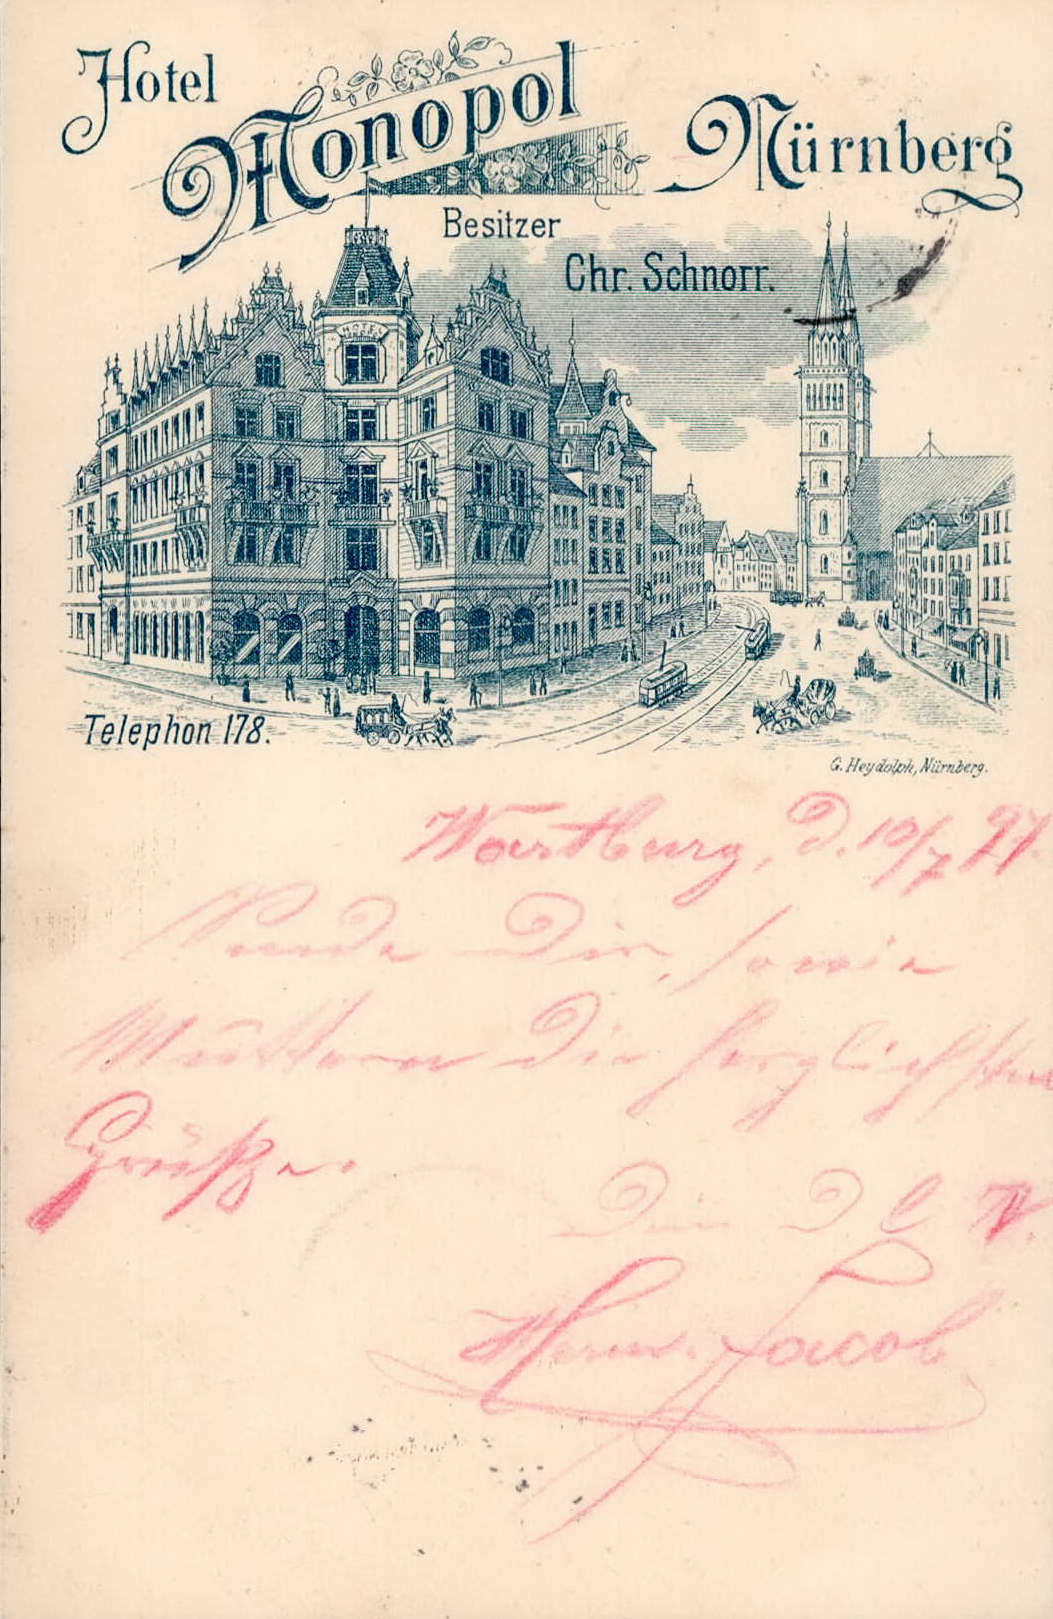 Hotel
Monopol
Nürnberg
Besitzer
Chr. Schnorr.
HOTEL
Telephon 178.
G. Heydolph, Nürnberg.
Wartburg, d. 10/7 97.
Sende Dir, sowie
Muttern die herzlichsten
Grüße.
Dein
Herm. Jacob